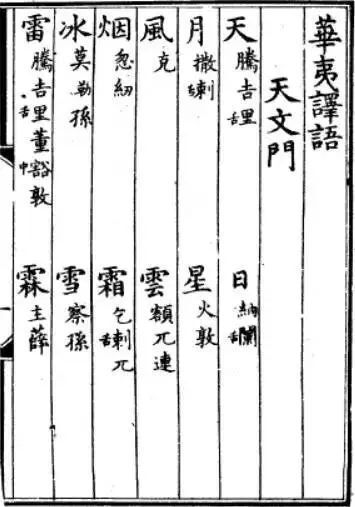 華夷譯語
天文門
天 騰吉舌里 日 納舌闌
月 撒舌剌 星 火敦
風 克 雲 額兀連
烟 忽紉 霜 乞舌剌兀
冰 莫勒孫 雪 察孫
雷 騰吉舌里董中豁敦 霖 主薛